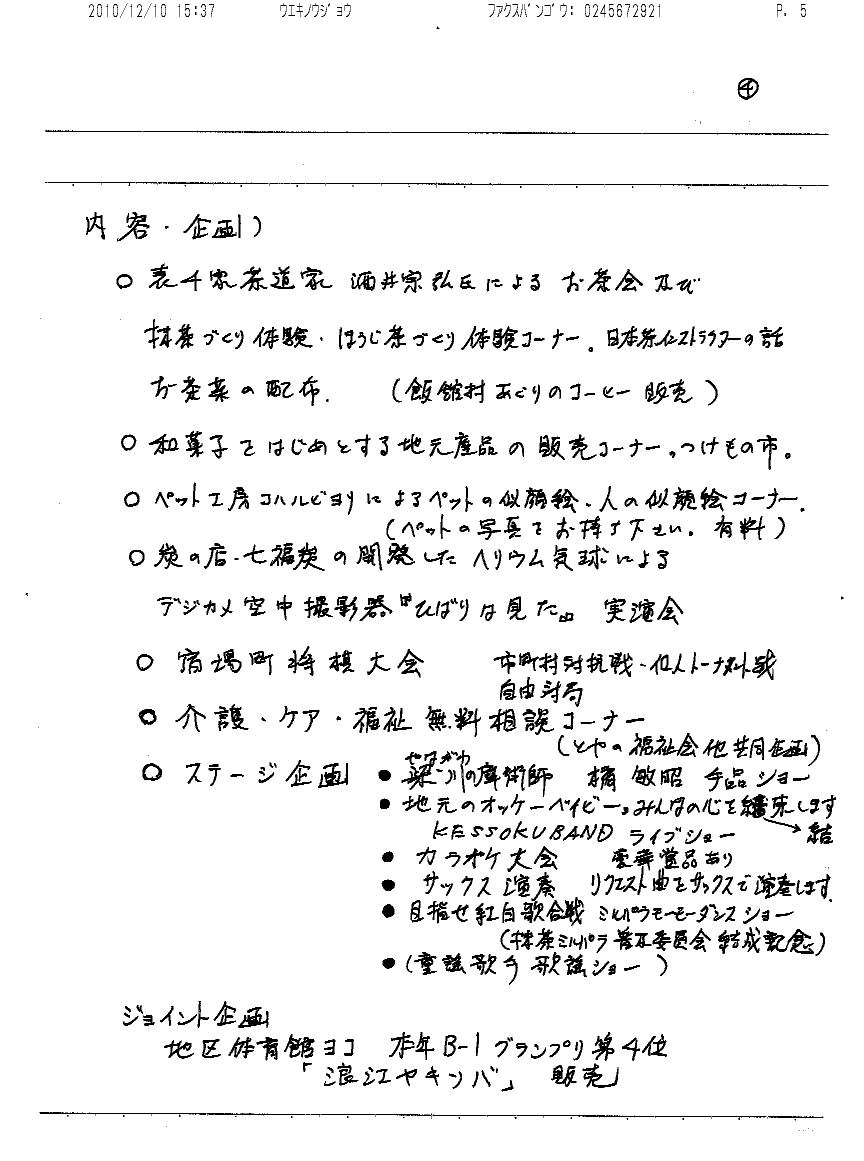 2010/12/10 15:37 ウエキノウジョウ ファクスバンゴウ: 0245672921 P. 5
④
内容・企画)
○ 表千家茶道家 酒井宗弘氏による お茶会及び
抹茶づくり体験・ほうじ茶づくり体験コーナー。日本茶インストラクターの話
お茶菜の配布. (飯舘村あぐりのコーヒー販売)
○ 和菓子をはじめとする地元産品の販売コーナー。つけもの市。
○ ペット工房コハルビヨリによるペットの似顔絵、人の似顔絵コーナー.
(ペットの写真をお持ち下さい。有料)
○ 炭の店・七福炭の開発したヘリウム気球による
デジカメ空中撮影器『ひばりは見た。』 実演会
○ 宿場町将棋大会 市町村対抗戦・個人トーナメント戦
自由対局
○ 介護・ケア・福祉 無料相談コーナー
(とやの福祉会他共同企画)
○ ステージ企画 ● やながわ
梁川の魔術師 橘 敏昭 手品ショー
● 地元のオッケーベイビー。みんなの心を結束します
KESSOKU BAND ライブショー → 結
● カラオケ大会 豪華賞品あり
● サックス演奏 リクエスト曲をサックスで演奏します.
● 目指せ紅白歌合戦 ミルパラモーモーダンスショー
(抹茶ミルパラ普及委員会結成記念)
● (童謡歌手 歌謡ショー)
ジョイント企画
地区体育館ヨコ 本年B-1グランプリ第4位
「浪江ヤキソバ」 販売」